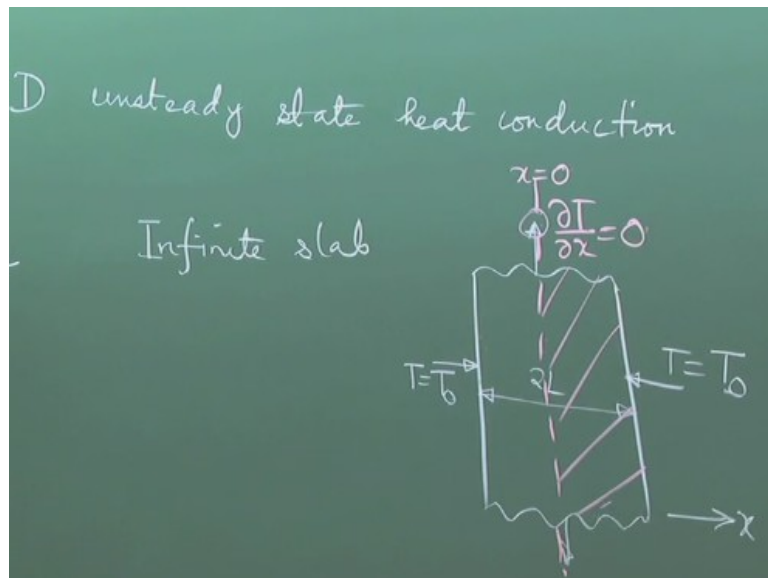 D unsteady state heat conduction
x=0
Infinite slab
∂T/∂x=0
T=T₀
2L
T=T₀
x